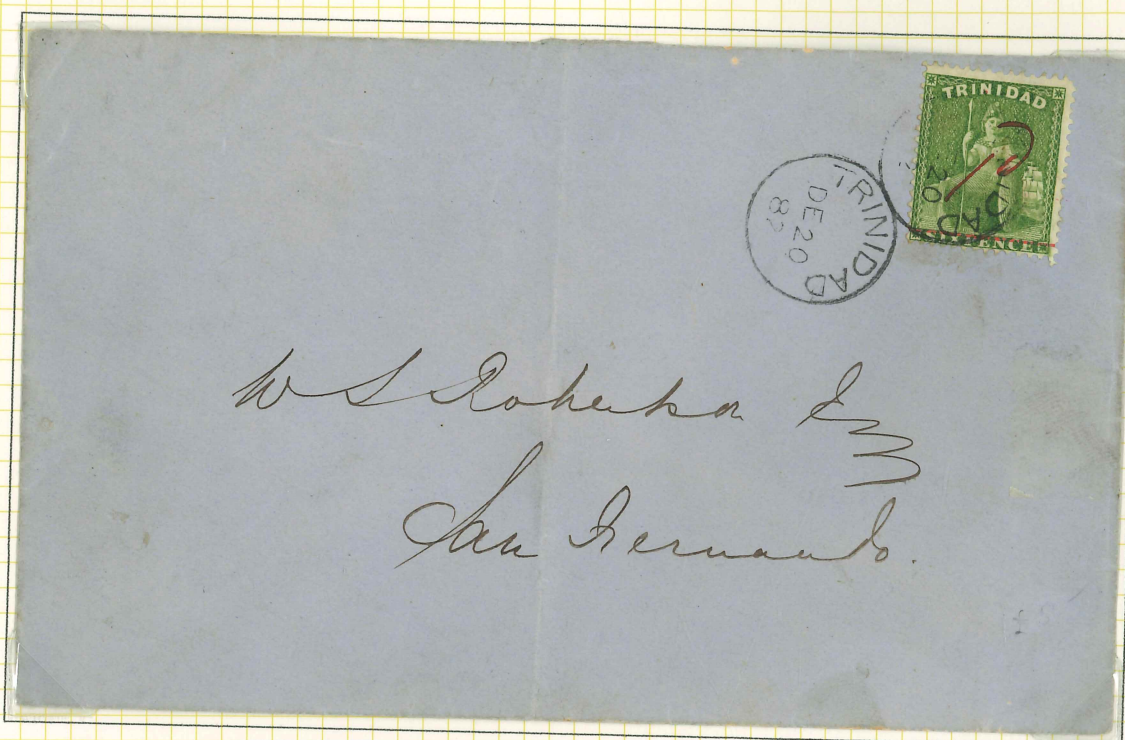 TRINIDAD
1d
SIX PENCE
TRINIDAD
DE 20
82
IDAD
20
W S Robertson Esq
San Fernando.